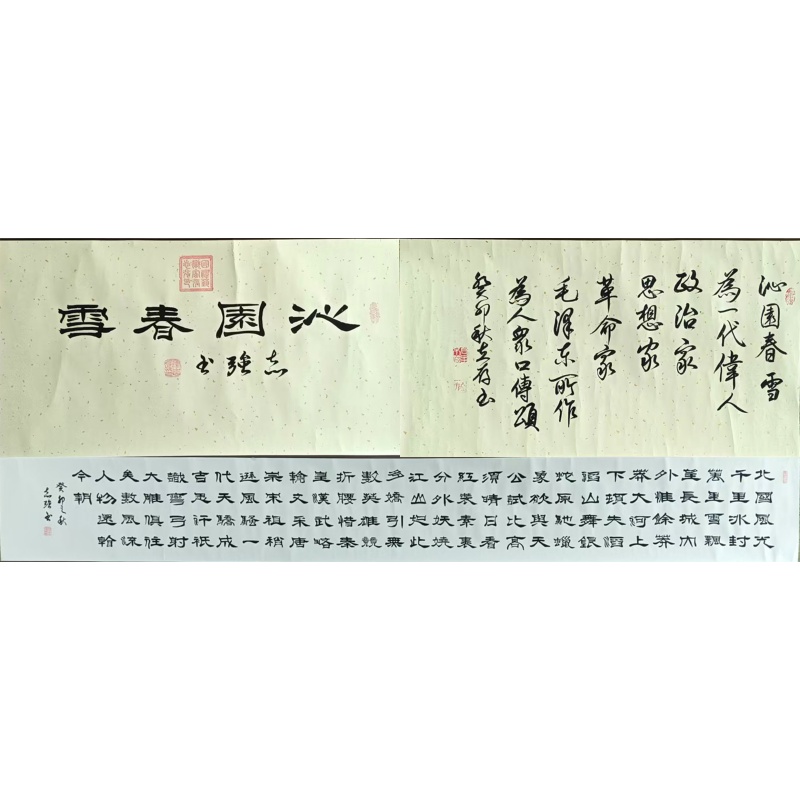 沁園春雪
志強书
沁園春雪
為一代偉人
政治家
思想家
革命家
毛澤東所作
為人眾口傳頌
癸卯秋志存书
北國風光
千里冰封
萬里雪飄
望長城內
外惟餘莽
莽大河上
下頓失滔
滔山舞銀
蛇原馳蠟
象欲與天
公試比高
須晴日看
紅裝素裹
分外妖嬈
江山如此
多嬌引無
數英雄競
折腰惜秦
皇漢武略
輸文采唐
宗宋祖稍
遜風騷一
代天驕成
吉思汗祇
識彎弓射
大雕俱往
矣數風流
人物還看
今朝
癸卯之秋
志强书